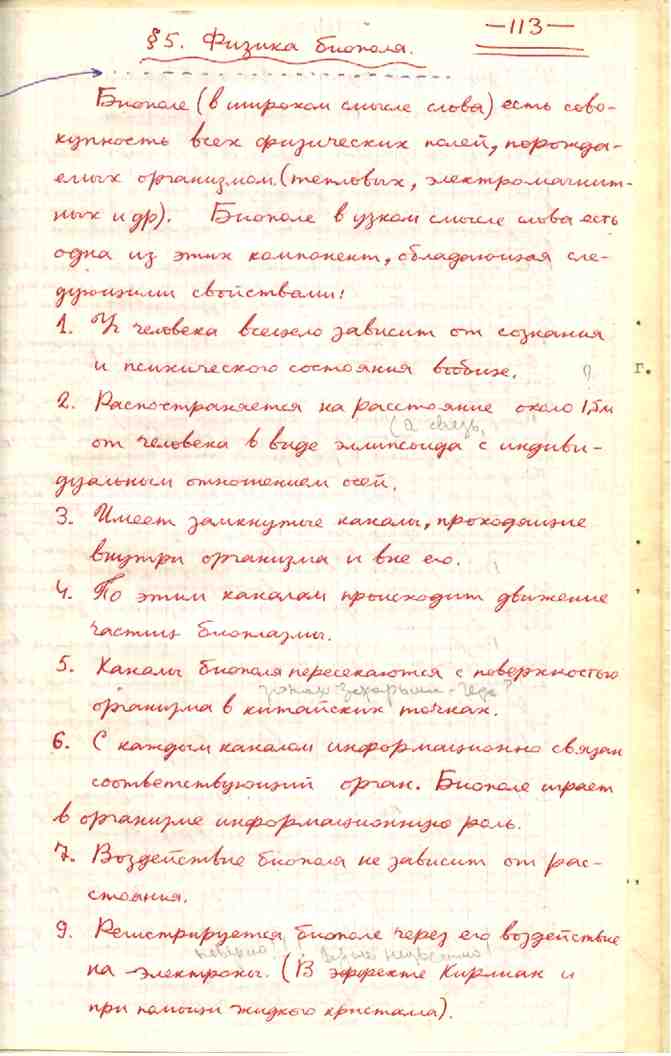 —113—
§5. Физика биополя.
Биополе (в широком смысле слова) есть сово-
купность всех физических полей, порожда-
емых организмом (тепловых, электромагнит-
ных и др). Биополе в узком смысле слова есть
одна из этих компонент, обладающая сле-
дующими свойствами:
1. У человека всецело зависит от сознания
и психического состояния вообще. ?
г.
2. Распостраняется на расстояние около 1,5м
(а связь,
от человека в виде эллипсоида с индиви-
дуальным отношением осей.
3. Имеет замкнутые каналы, проходящие
внутри организма и вне его.
4. По этим каналам происходит движение
частиц биоплазмы.
5. Каналы биополя пересекаются с поверхностью
зонах Захарьина-Геда?
организма в китайских точках.
6. С каждым каналом информационно связан
соответствующий орган. Биополе играет
в организме информационную роль.
7. Воздействие биополя не зависит от рас-
стояния.
9. Регистрируется биополе через его воздействие
неверно.
на электроны. (В эффекте Кирлиан и
при помощи жидкого кристалла).